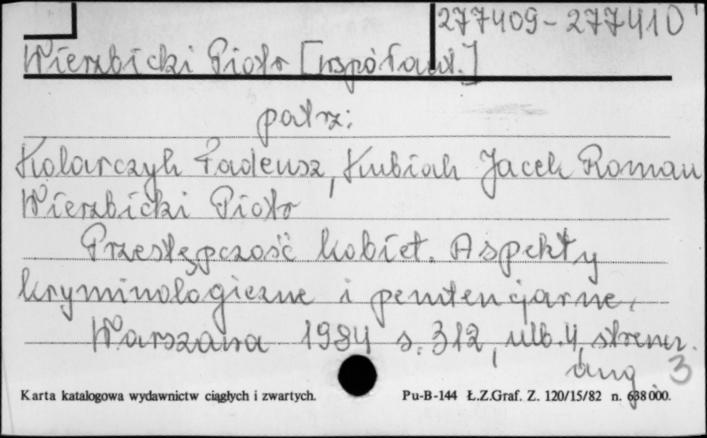 277409-277410
Wierzbicki Piotr [współaut.]
patrz:
Kołarczyk Tadeusz, Kubiak Jacek Roman
Wierzbicki Piotr
Przestępczość kobiet. Aspekty
kryminologiczne i penitencjarne.
Warszawa 1984 s. 312, nlb. 4, streszcz.
ang. 3
Karta katalogowa wydawnictw ciągłych i zwartych. Pu-B-144 Ł.Z.Graf. Z. 120/15/82 n. 638 000.